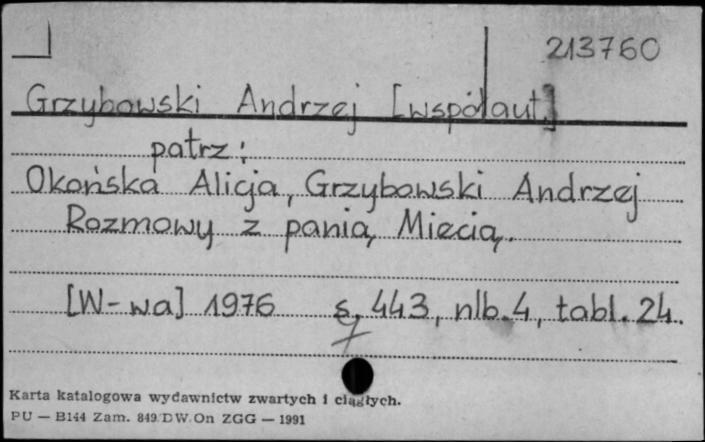 213760
Grzybowski Andrzej [współaut.]
patrz:
Okońska Alicja, Grzybowski Andrzej
Rozmowy z panią Miecią.
[W-wa] 1976 s. 443, nlb. 4, tabl. 24.
Karta katalogowa wydawnictw zwartych i ciągłych.
PU — B144 Zam. 849/DW/On ZGG — 1991